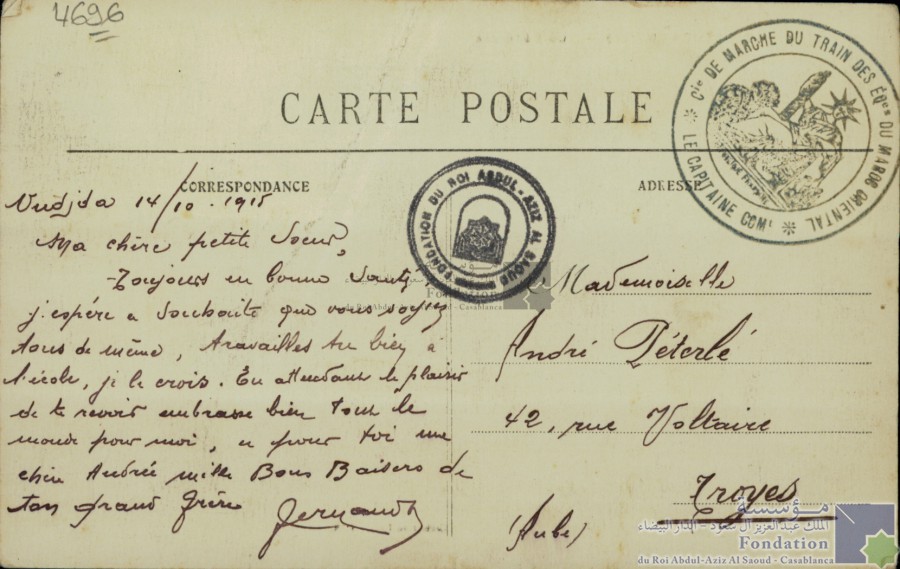 4696
CARTE POSTALE
CORRESPONDANCE
ADRESSE
Cie DE MARCHE DU TRAIN DES ÉQes DU MAROC ORIENTAL
* LE CAPITAINE COMt *
FONDATION DU ROI ABDUL-AZIZ AL SAOUD
Oudjda 14/10.1915
Ma chère petite Soeur,
Toujours en bonne Santé,
j'espère et Souhaite que vous soyez
tous de même, travailles tu bien à
l'école, je le crois. En attendant le plaisir
de te revoir embrasse bien tout le
monde pour moi, et pour toi ma
chère Andrée mille Bons Baisers de
ton grand frère
Fernand
Mademoiselle
André Péterlé
42, rue Voltaire
Troyes
(Aube)
Fondation
du Roi Abdul-Aziz Al Saoud - Casablanca
مؤسسة
الملك عبد العزيز آل سعود - الدار البيضاء
Fondation
du Roi Abdul-Aziz Al Saoud - Casablanca